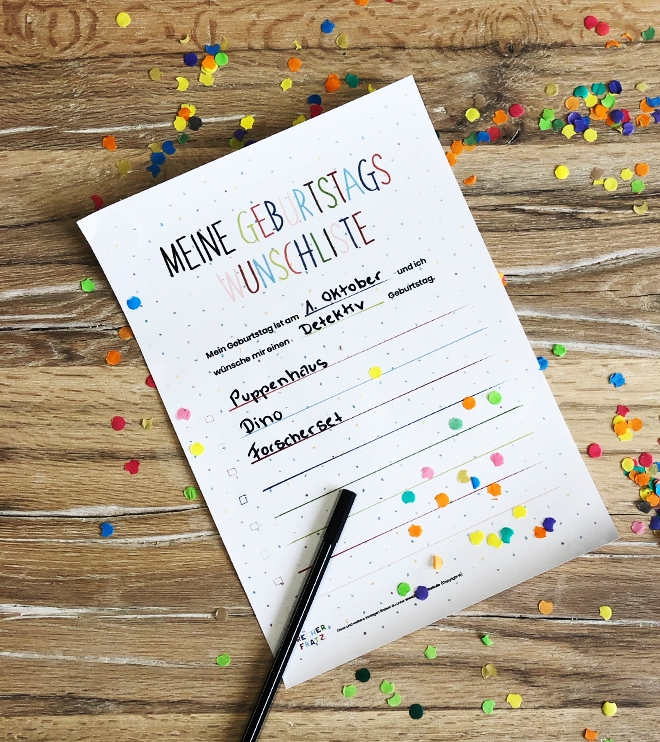 MEINE GEBURTSTAGS
WUNSCHLISTE
Mein Geburtstag ist am 1. Oktober und ich
wünsche mir einen Detektiv Geburtstag.
Puppenhaus
Dino
Forscherset
FRATZ